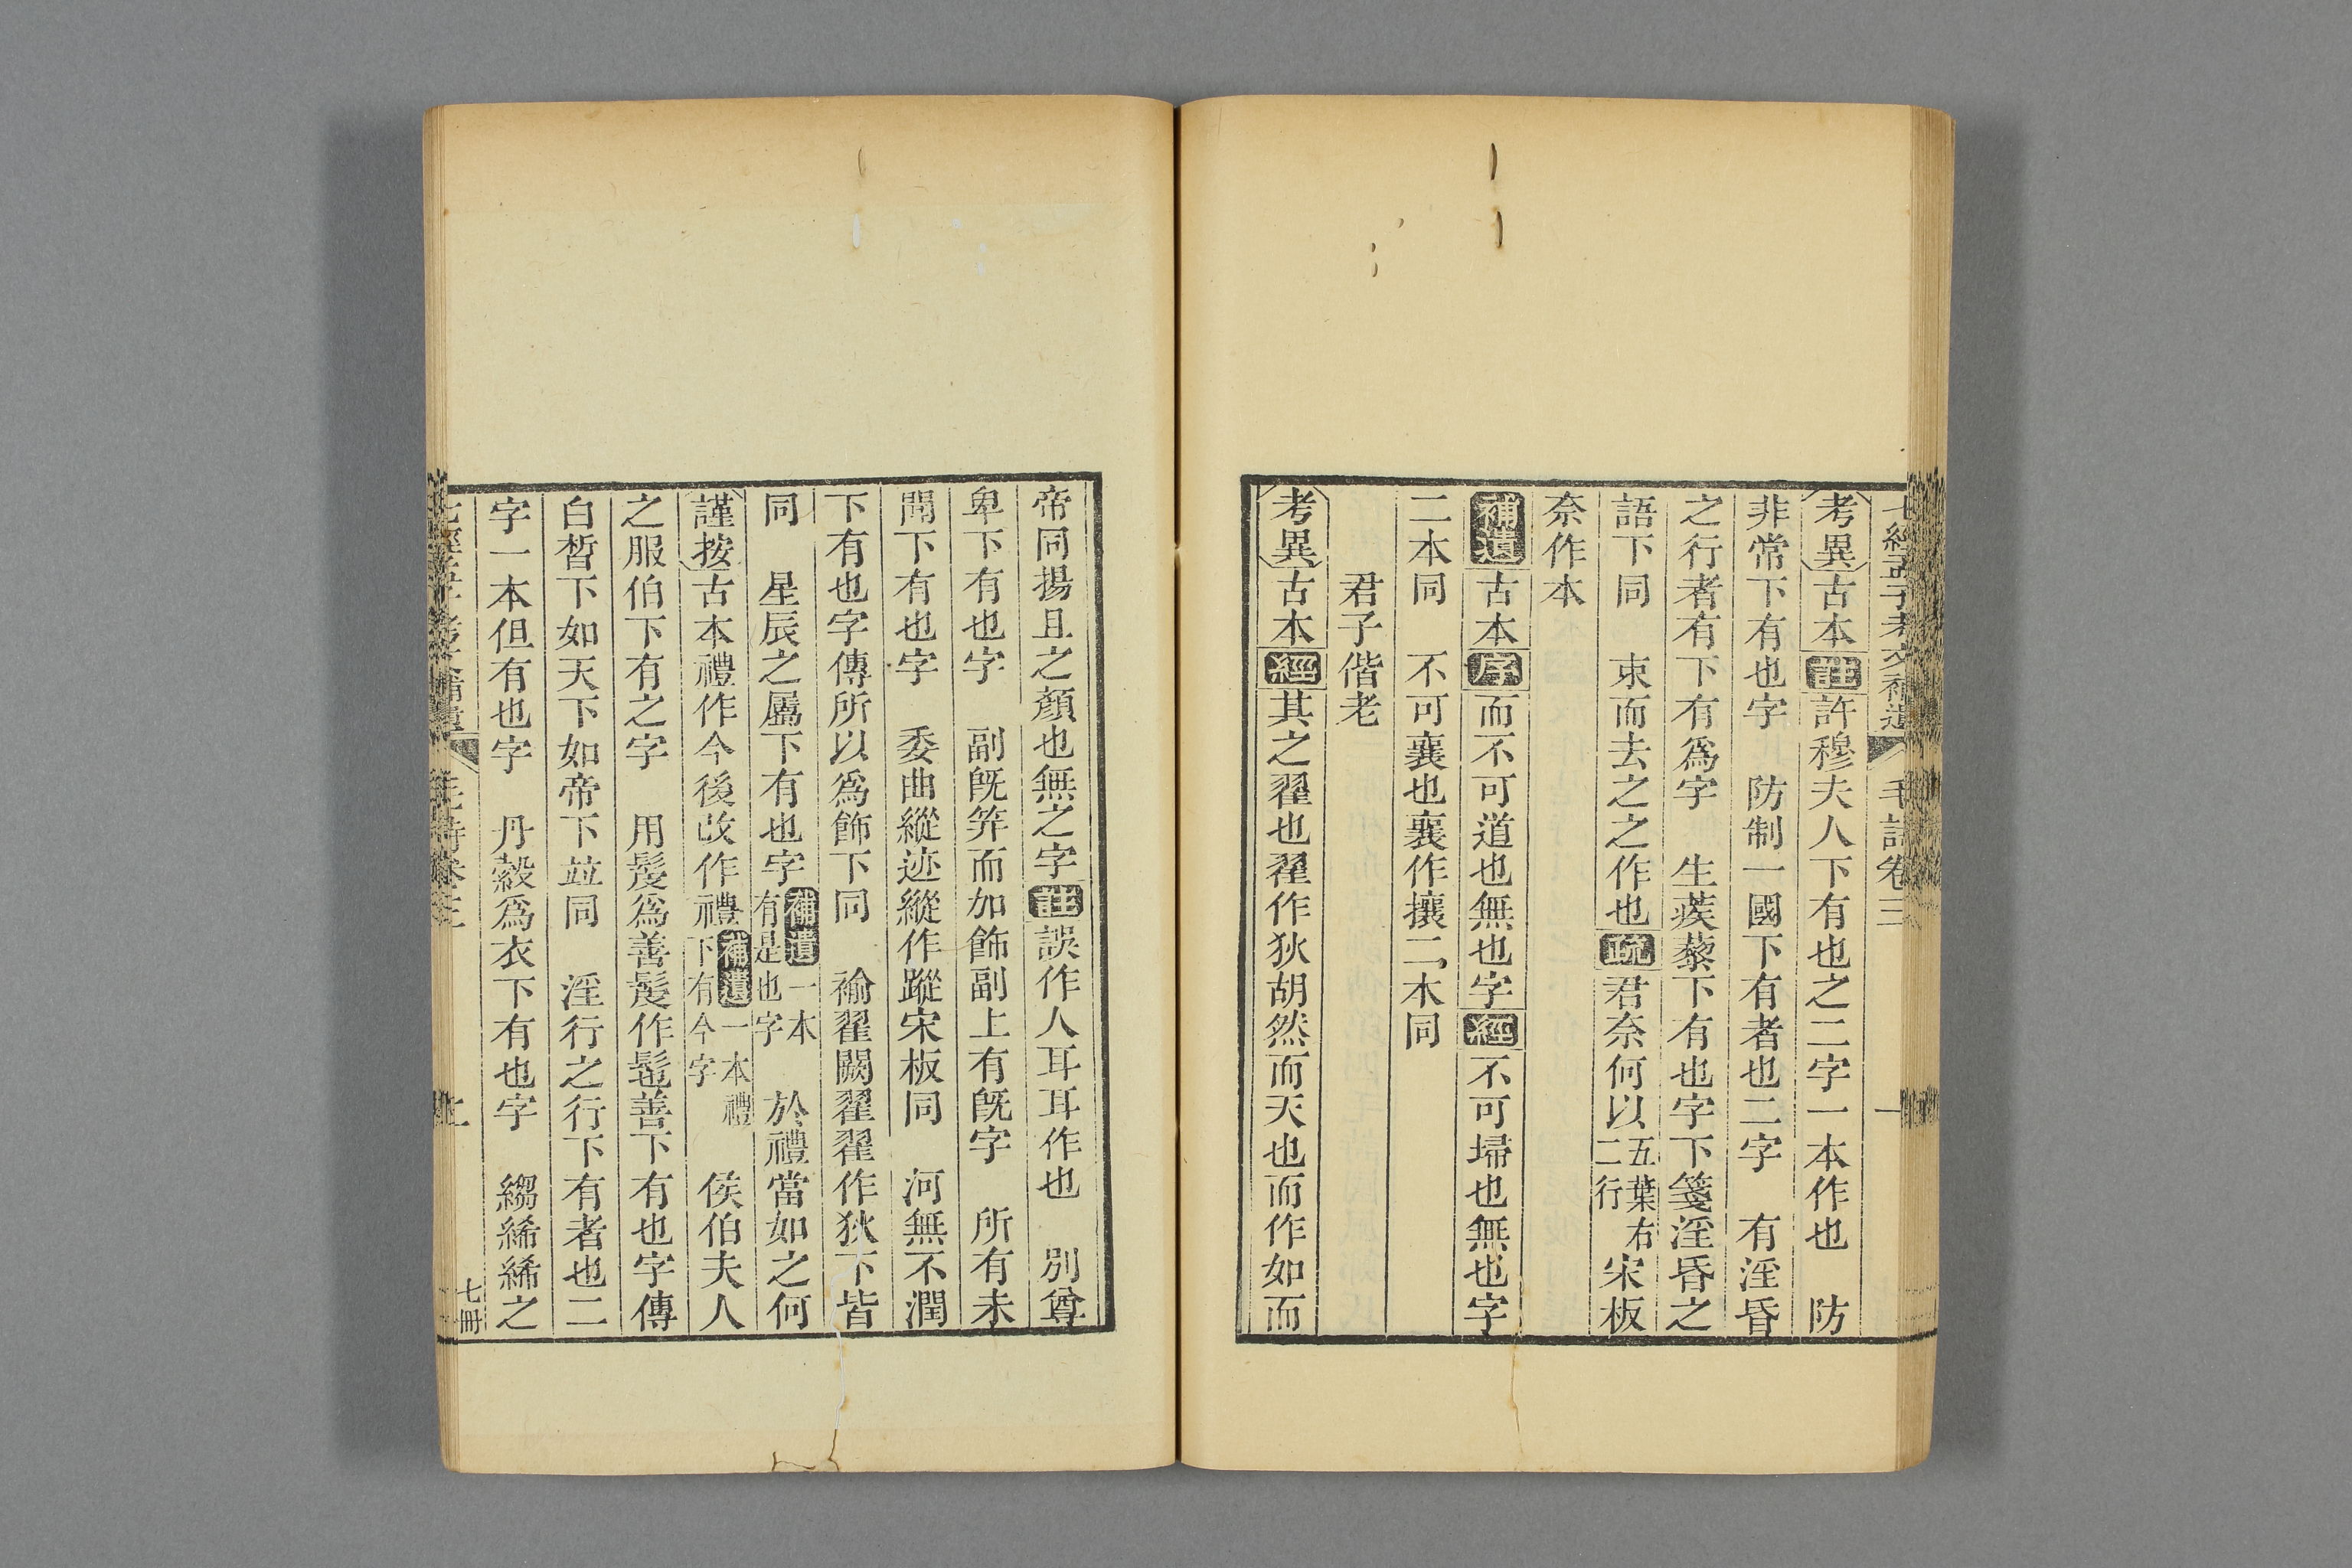 七經孟子考文補遺 毛詩卷三 一
考異古本註許穆夫人下有也之二字一本作也 防
非常下有也字 防制一國下有者也二字 有淫昏
之行者有下有爲字 生蒺藜下有也字下箋淫昏之
語下同 束而去之之作也疏君奈何以五葉右二行宋板
奈作本
補遺古本序而不可道也無也字經不可埽也無也字
二本同 不可襄也襄作攘二本同
君子偕老
考異古本經其之翟也翟作狄胡然而天也而作如而
帝同揚且之顏也無之字註誤作人耳耳作也 別尊
卑下有也字 副旣笄而加飾副上有旣字 所有未
聞下有也字 委曲縱迹縱作蹤宋板同 河無不潤
下有也字傳所以爲飾下同 褕翟闕翟翟作狄下皆
同 星辰之屬下有也字補遺一本有是也字 於禮當如之何
謹按古本禮作今後改作禮補遺一本禮下有今字 侯伯夫人
之服伯下有之字 用髲爲善髲作髢善下有也字傳
白皙下如天下如帝下竝同 淫行之行下有者也二
字一本但有也字 丹縠爲衣下有也字 縐絺絺之
七冊